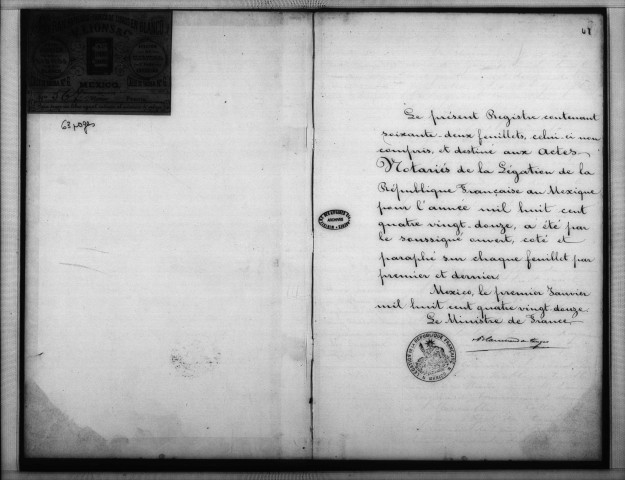 MEXICO.
63 pages
48
Le présent Registre contenant
soixante-deux feuillets, celui-ci non
compris, et destiné aux Actes
Notariés de la Légation de la
République Française au Mexique
pour l'année mil huit cent
quatre vingt-douze, a été par
le soussigné ouvert, coté et
paraphé sur chaque feuillet par
premier et dernier.
Mexico, le premier Janvier
mil huit cent quatre vingt douze.
Le Ministre de France,
LA RÉPUBLIQUE FRANÇAISE